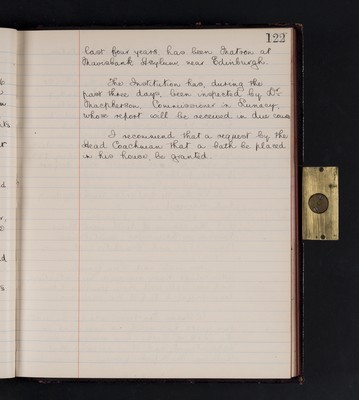 122
last four years, has been Matron at
Mavisbank Asylum near Edinburgh.
The Institution has, during the
past three days, been inspected by Dr
Macpherson, Commissioner in Lunacy,
whose report will be received in due course
I recommend that a request by the
Head Coachman that a bath be placed
in his house, be granted.